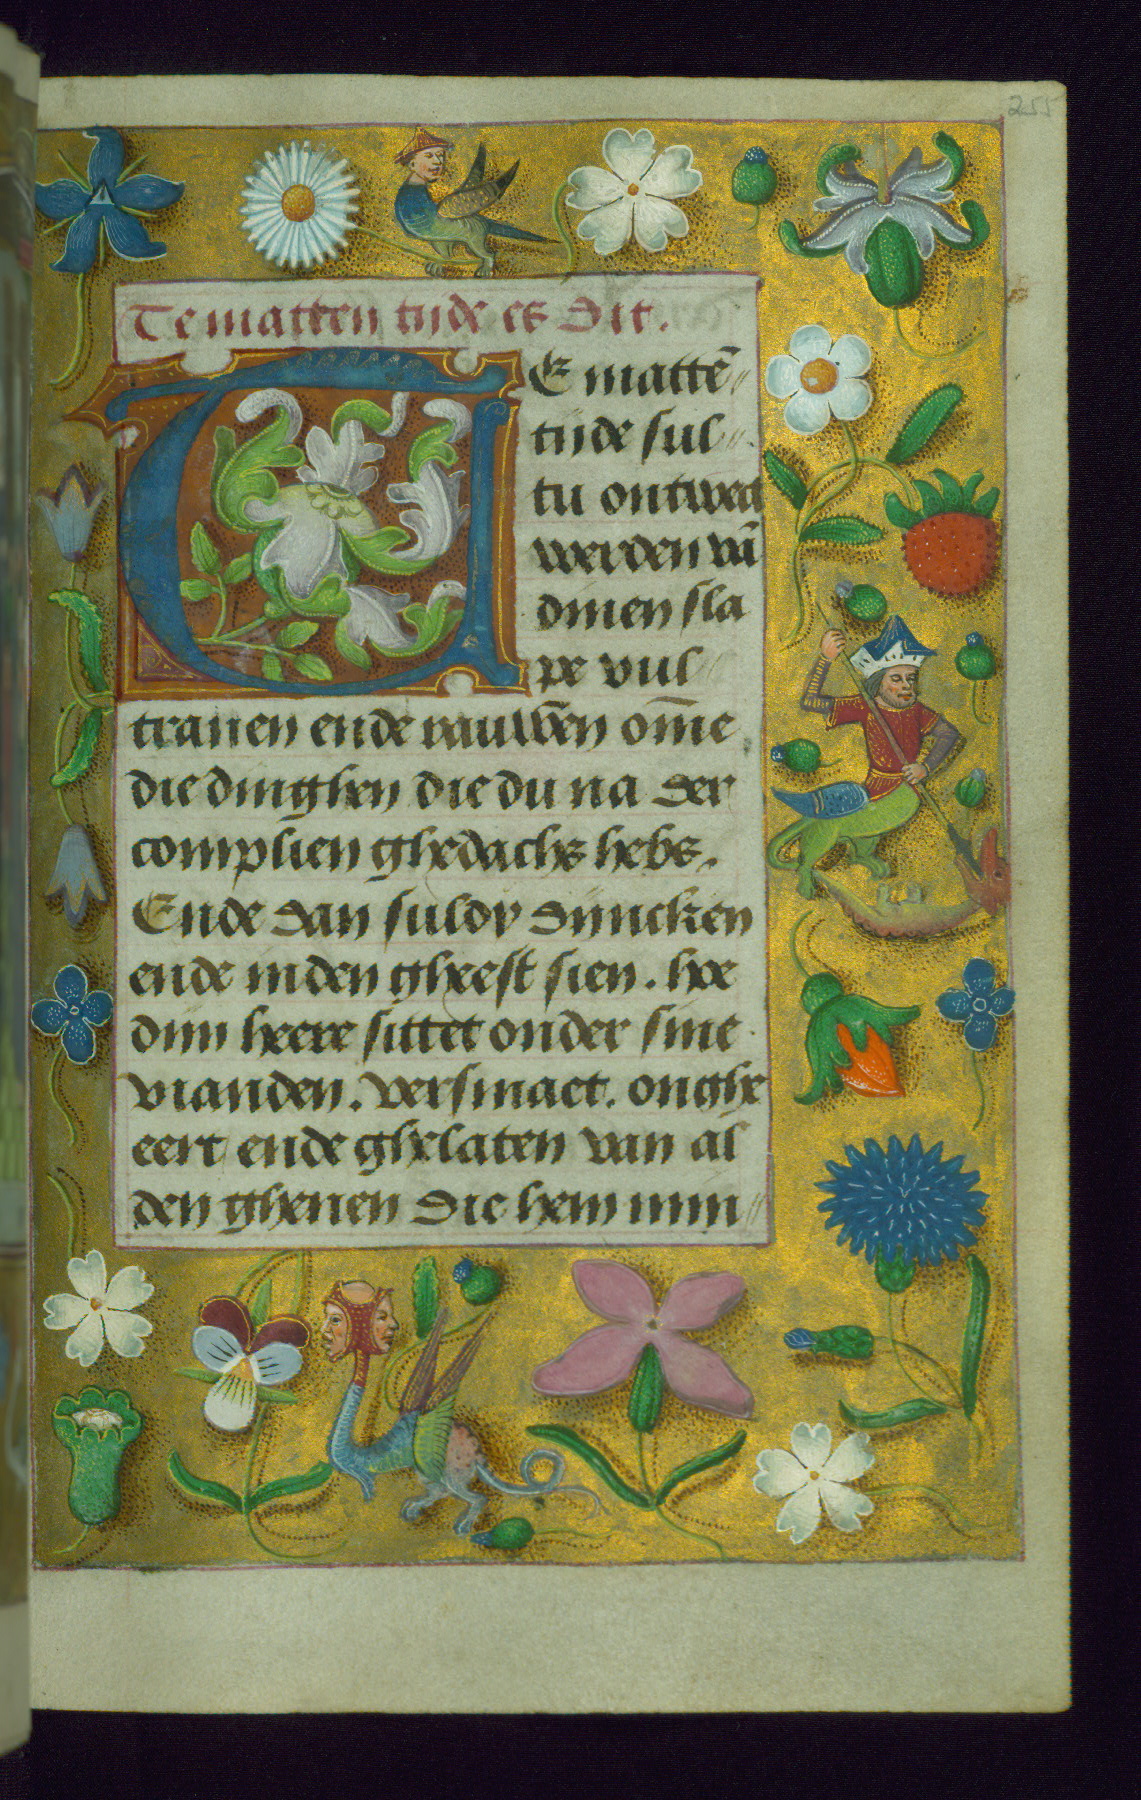 255
Te matten tijde es dit.
TE mattē
tijde sul
tu ontwect
werden vā
dinen sla
pe vul
tranen ende rauwen om̄e
die dinghen die du na der
complien ghedachs hebs.
Ende dan suldy duncken
ende inden gheest sien. hoe
dijn heere sittet onder sine
vianden. versmaet. onghe
eert ende ghelaten van al
den ghenen die hem min